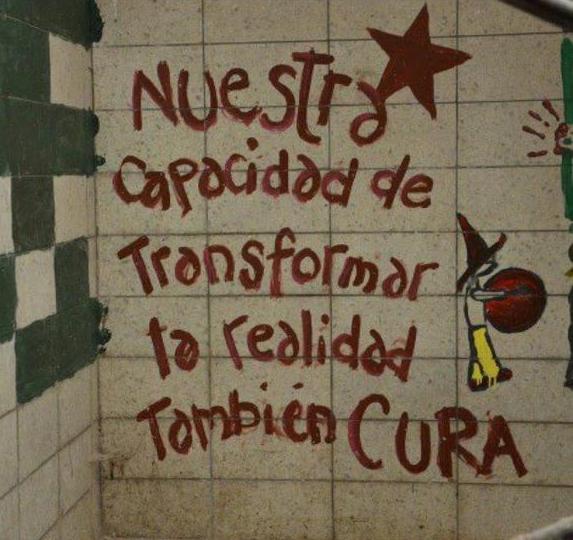 Nuestra
capacidad de
Transformar
la realidad
También CURA